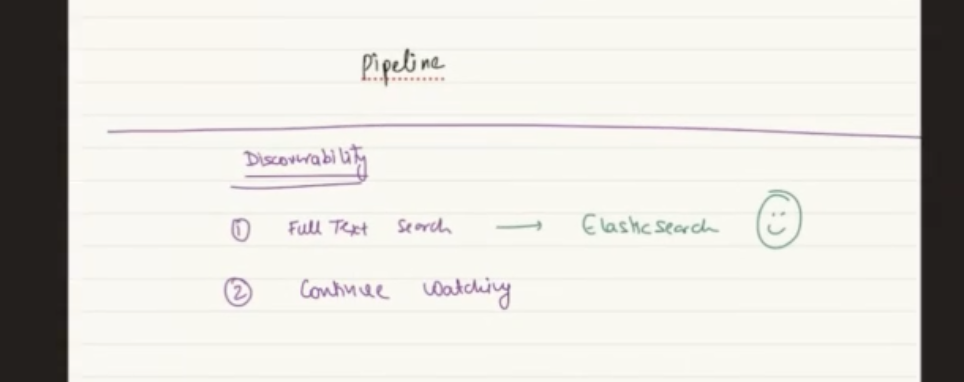 Pipeline
Discoverability
① Full Text Search → Elasticsearch
② Continue Watching